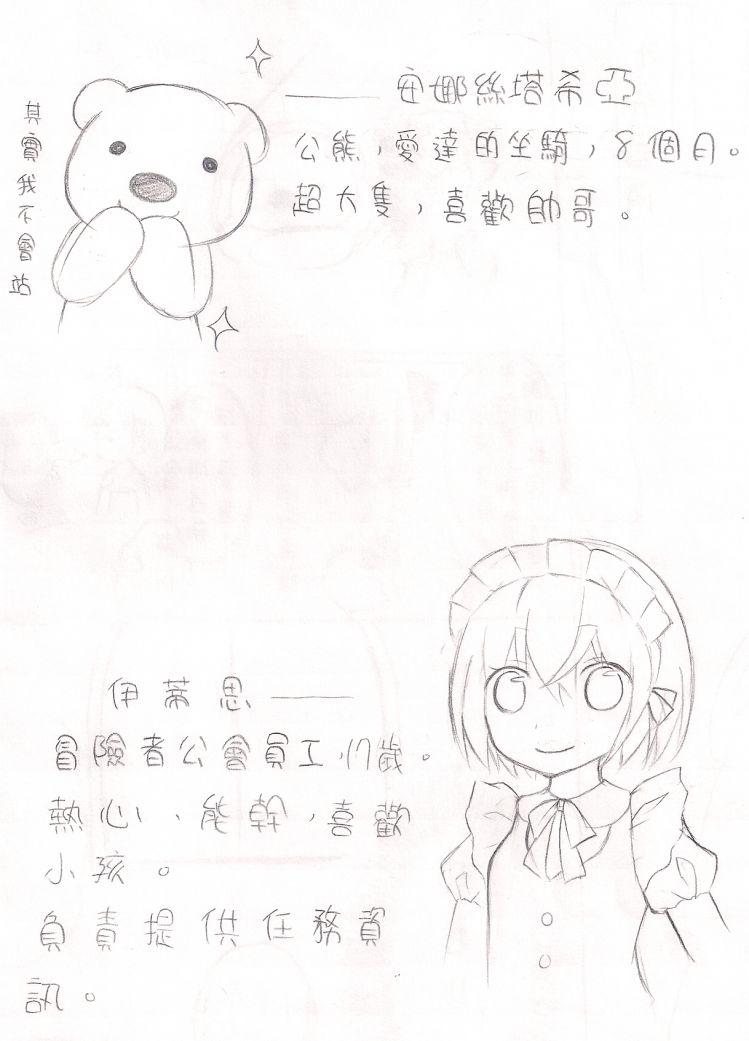 其實我不會站
——安娜絲塔希亞
公熊,愛達的坐騎,8個月。
超大隻,喜歡帥哥。
伊蒂思——
冒險者公會員工,17歲。
熱心、能幹,喜歡
小孩。
負責提供任務資
訊。